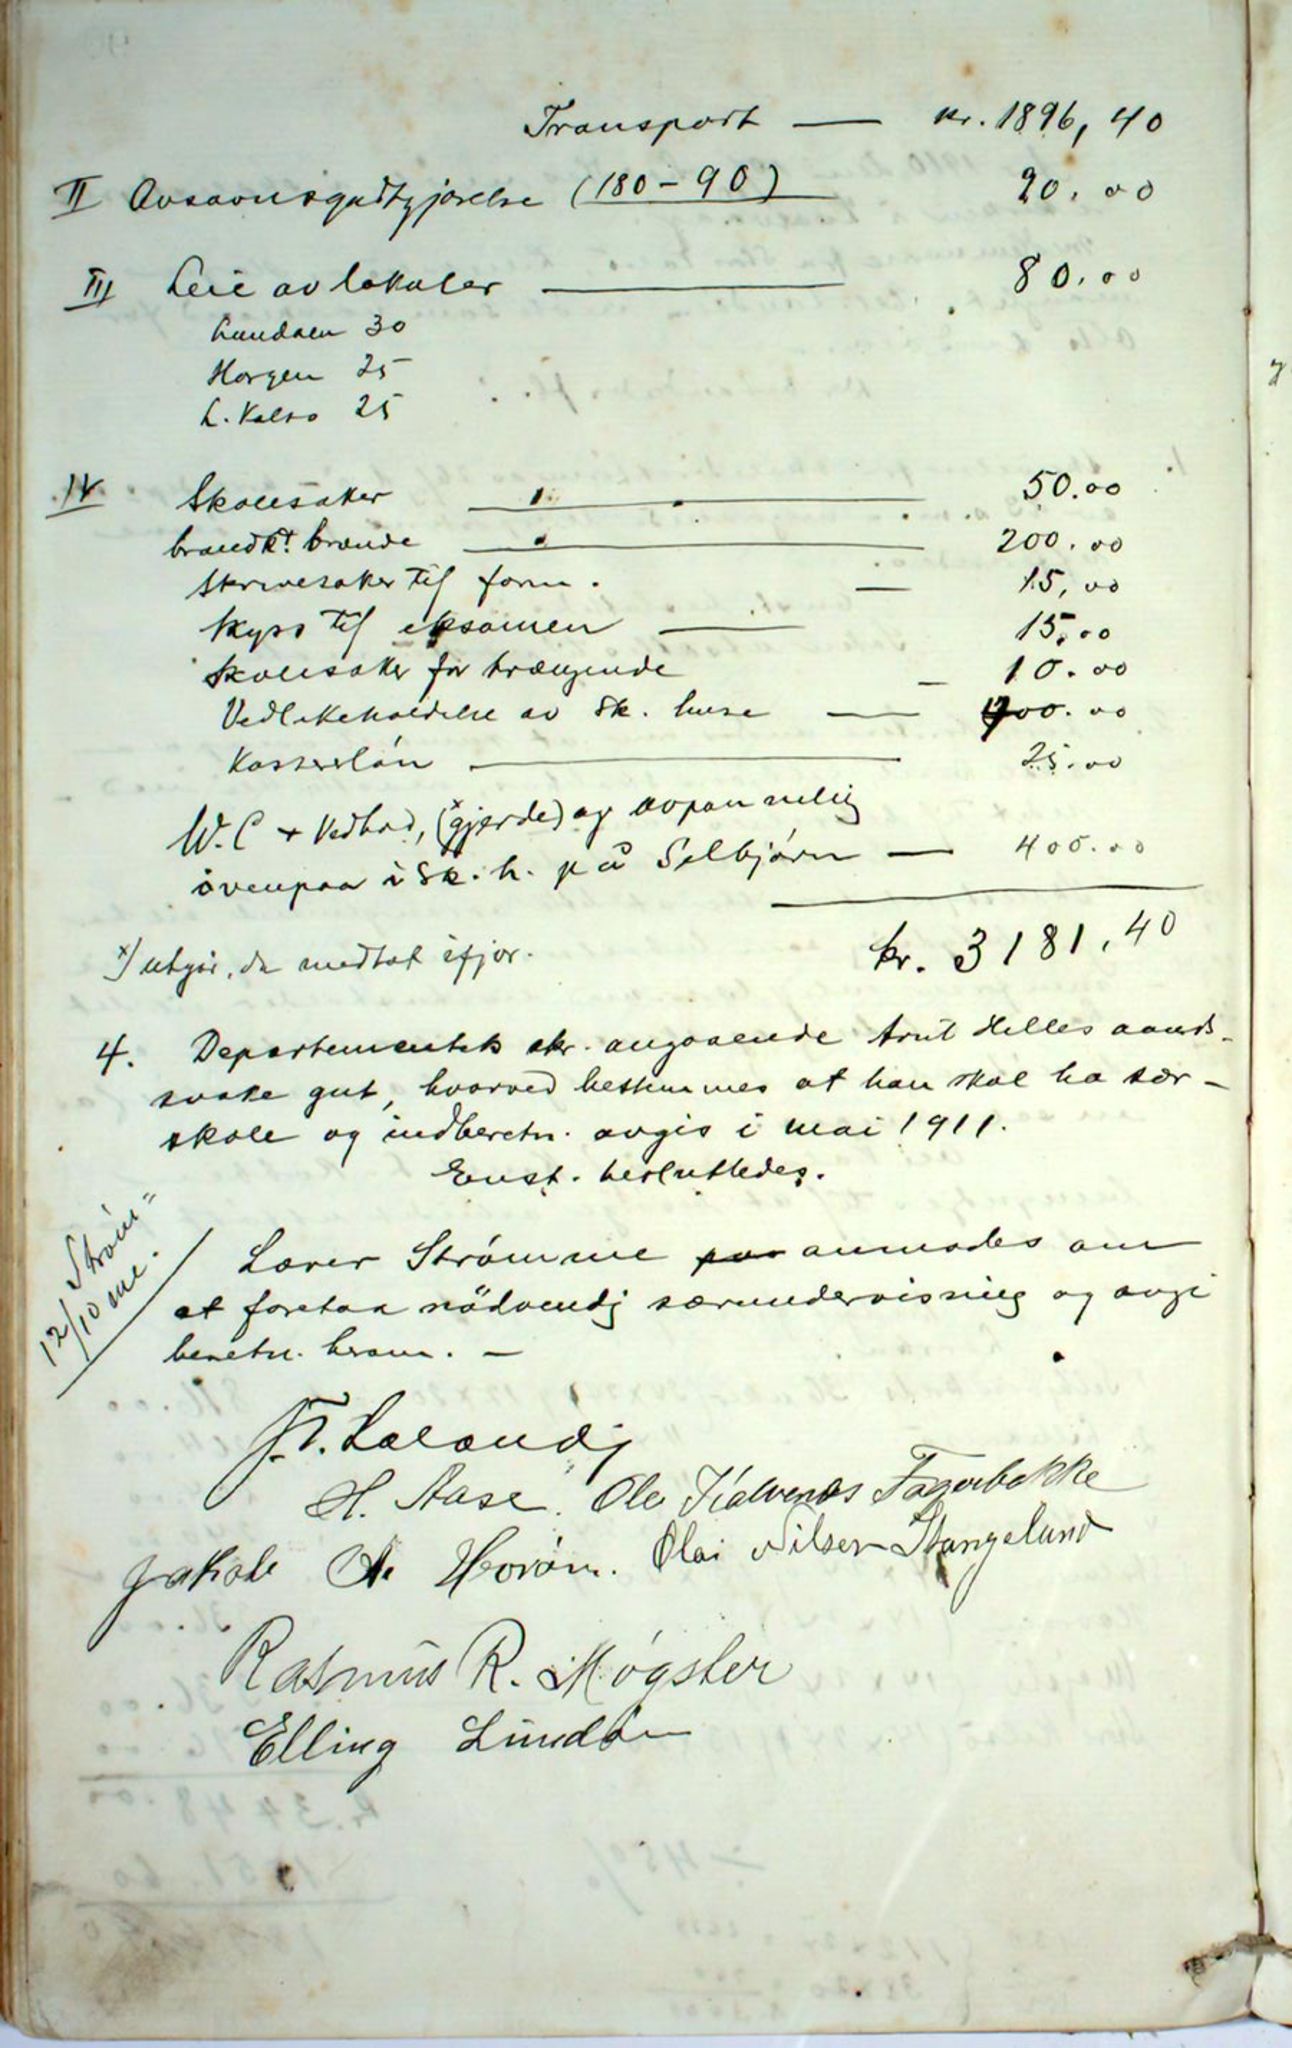 Transport — kr. 1896,40
II Avsavnsgodtgjørelse (180-90) 90.00
III Leie av lokaler — 80.00
Lundøen 30
Horgen 25
L. Kalsø 25
IV Skolesaker — 50.00
brændt. brænde — 200.00
Skrivesaker til form. — 15,00
Skyss til eksamen — 15,00
Skolesaker for trængende — 10.00
Vedlikeholdelse av Sk. huse — 400.00
Kassererløn — 25.00
W.C + Vedbod, (x gjerde) og avpanneling
ovenpaa i Sk. h. på Selbjørn — 400.00
kr. 3181,40
x) utgår, da medtat ifjor.
4. Departementets skr. angaaende Arnt Helles aands-
svake gut, hvorved bestemmes at han skal ha sær-
skole og indberetn. avgis i mai 1911.
Enst. besluttedes.
Lærer Strømme anmodes om
at foretaa nödvendig særundervisning og avgi
beretn. herom. —
12/10 Ström=
me.
H. Aase. Ole Kalvenes Fagerbakke
Jakob A. Horøm. Olai Nilsen Stangeland
Rasmus R. Møgster
Elling Lundøn